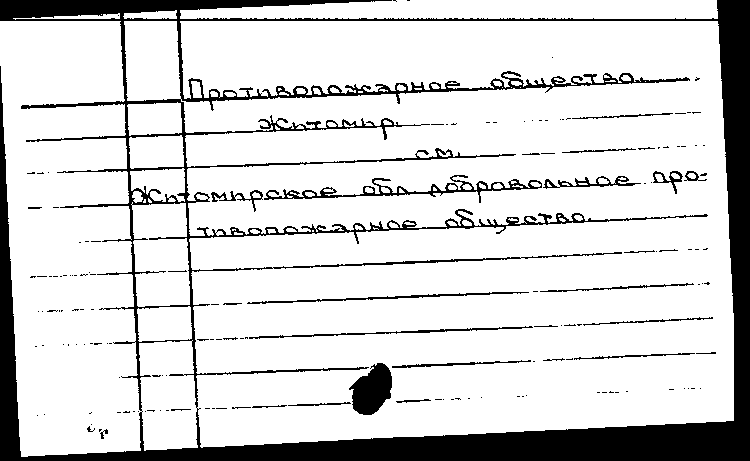 Противопожарное общество.
Житомир.
см.
Житомирское обл. добровольное про-
тивопожарное общество.